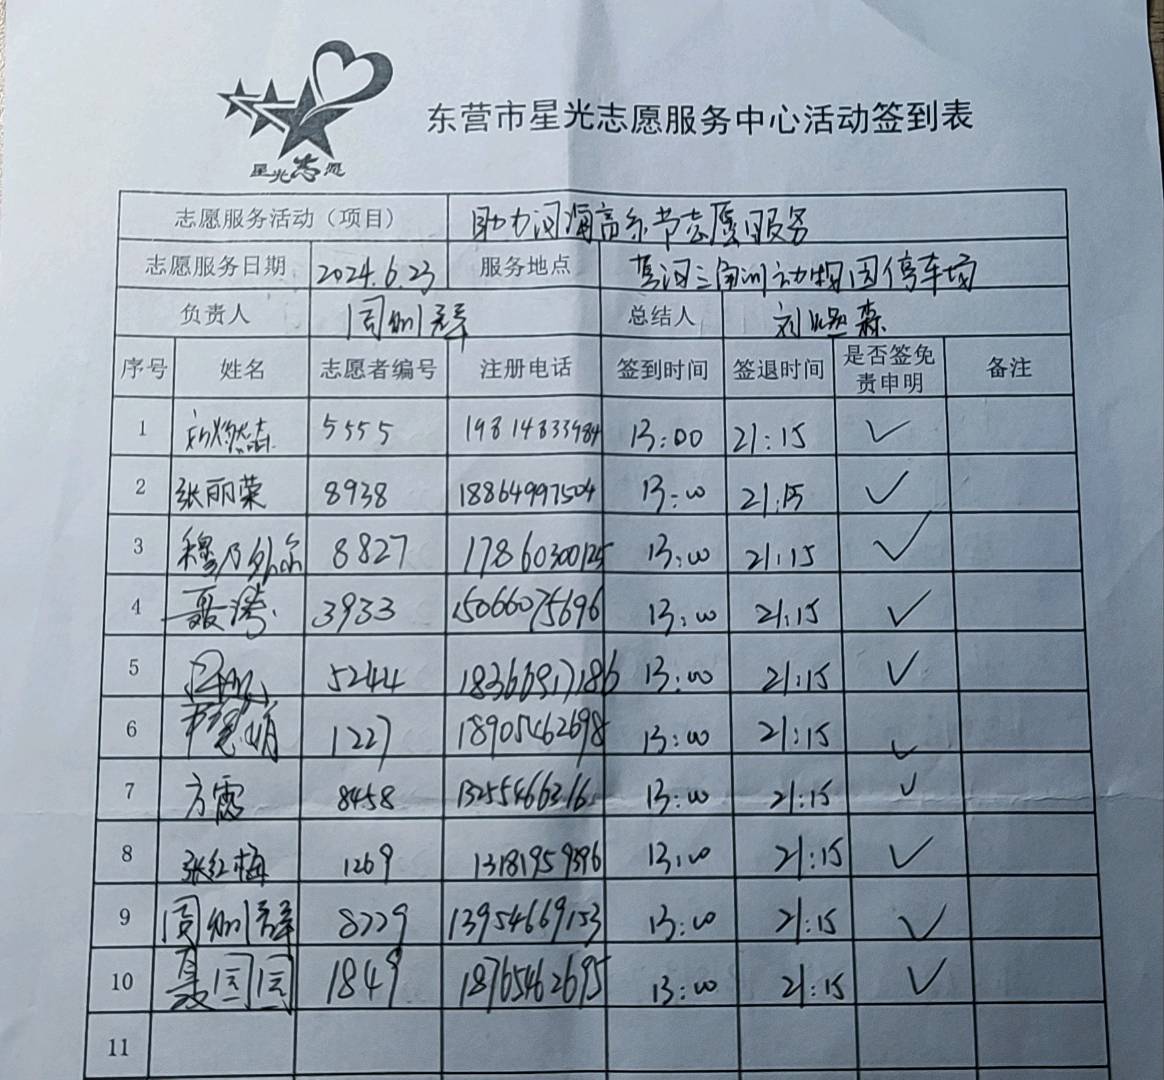 星光志愿
东营市星光志愿服务中心活动签到表
志愿服务活动（项目） 助力河海音乐节志愿服务
志愿服务日期 2024.6.23 服务地点 黄河三角洲动物园停车场
负责人 周 群 总结人 刘燃森
序号 姓名 志愿者编号 注册电话 签到时间 签退时间 是否签免责申明 备注
1 刘燃森 5555 19814833984 13:00 21:15 ✓
2 张丽荣 8938 18864997504 13:00 21:15 ✓
3 穆乃外尔 8827 17860300125 13:00 21:15 ✓
4 聂涛 3933 15066075696 13:00 21:15 ✓
5 5244 18366917186 13:00 21:15 ✓
6 1227 18905462698 13:00 21:15 ✓
7 方霞 8458 13:00 21:15 ✓
8 张红梅 1269 13181959396 13:00 21:15 ✓
9 周 群 8229 13954669153 13:00 21:15 ✓
10 聂園園 1849 18765462695 13:00 21:15 ✓
11